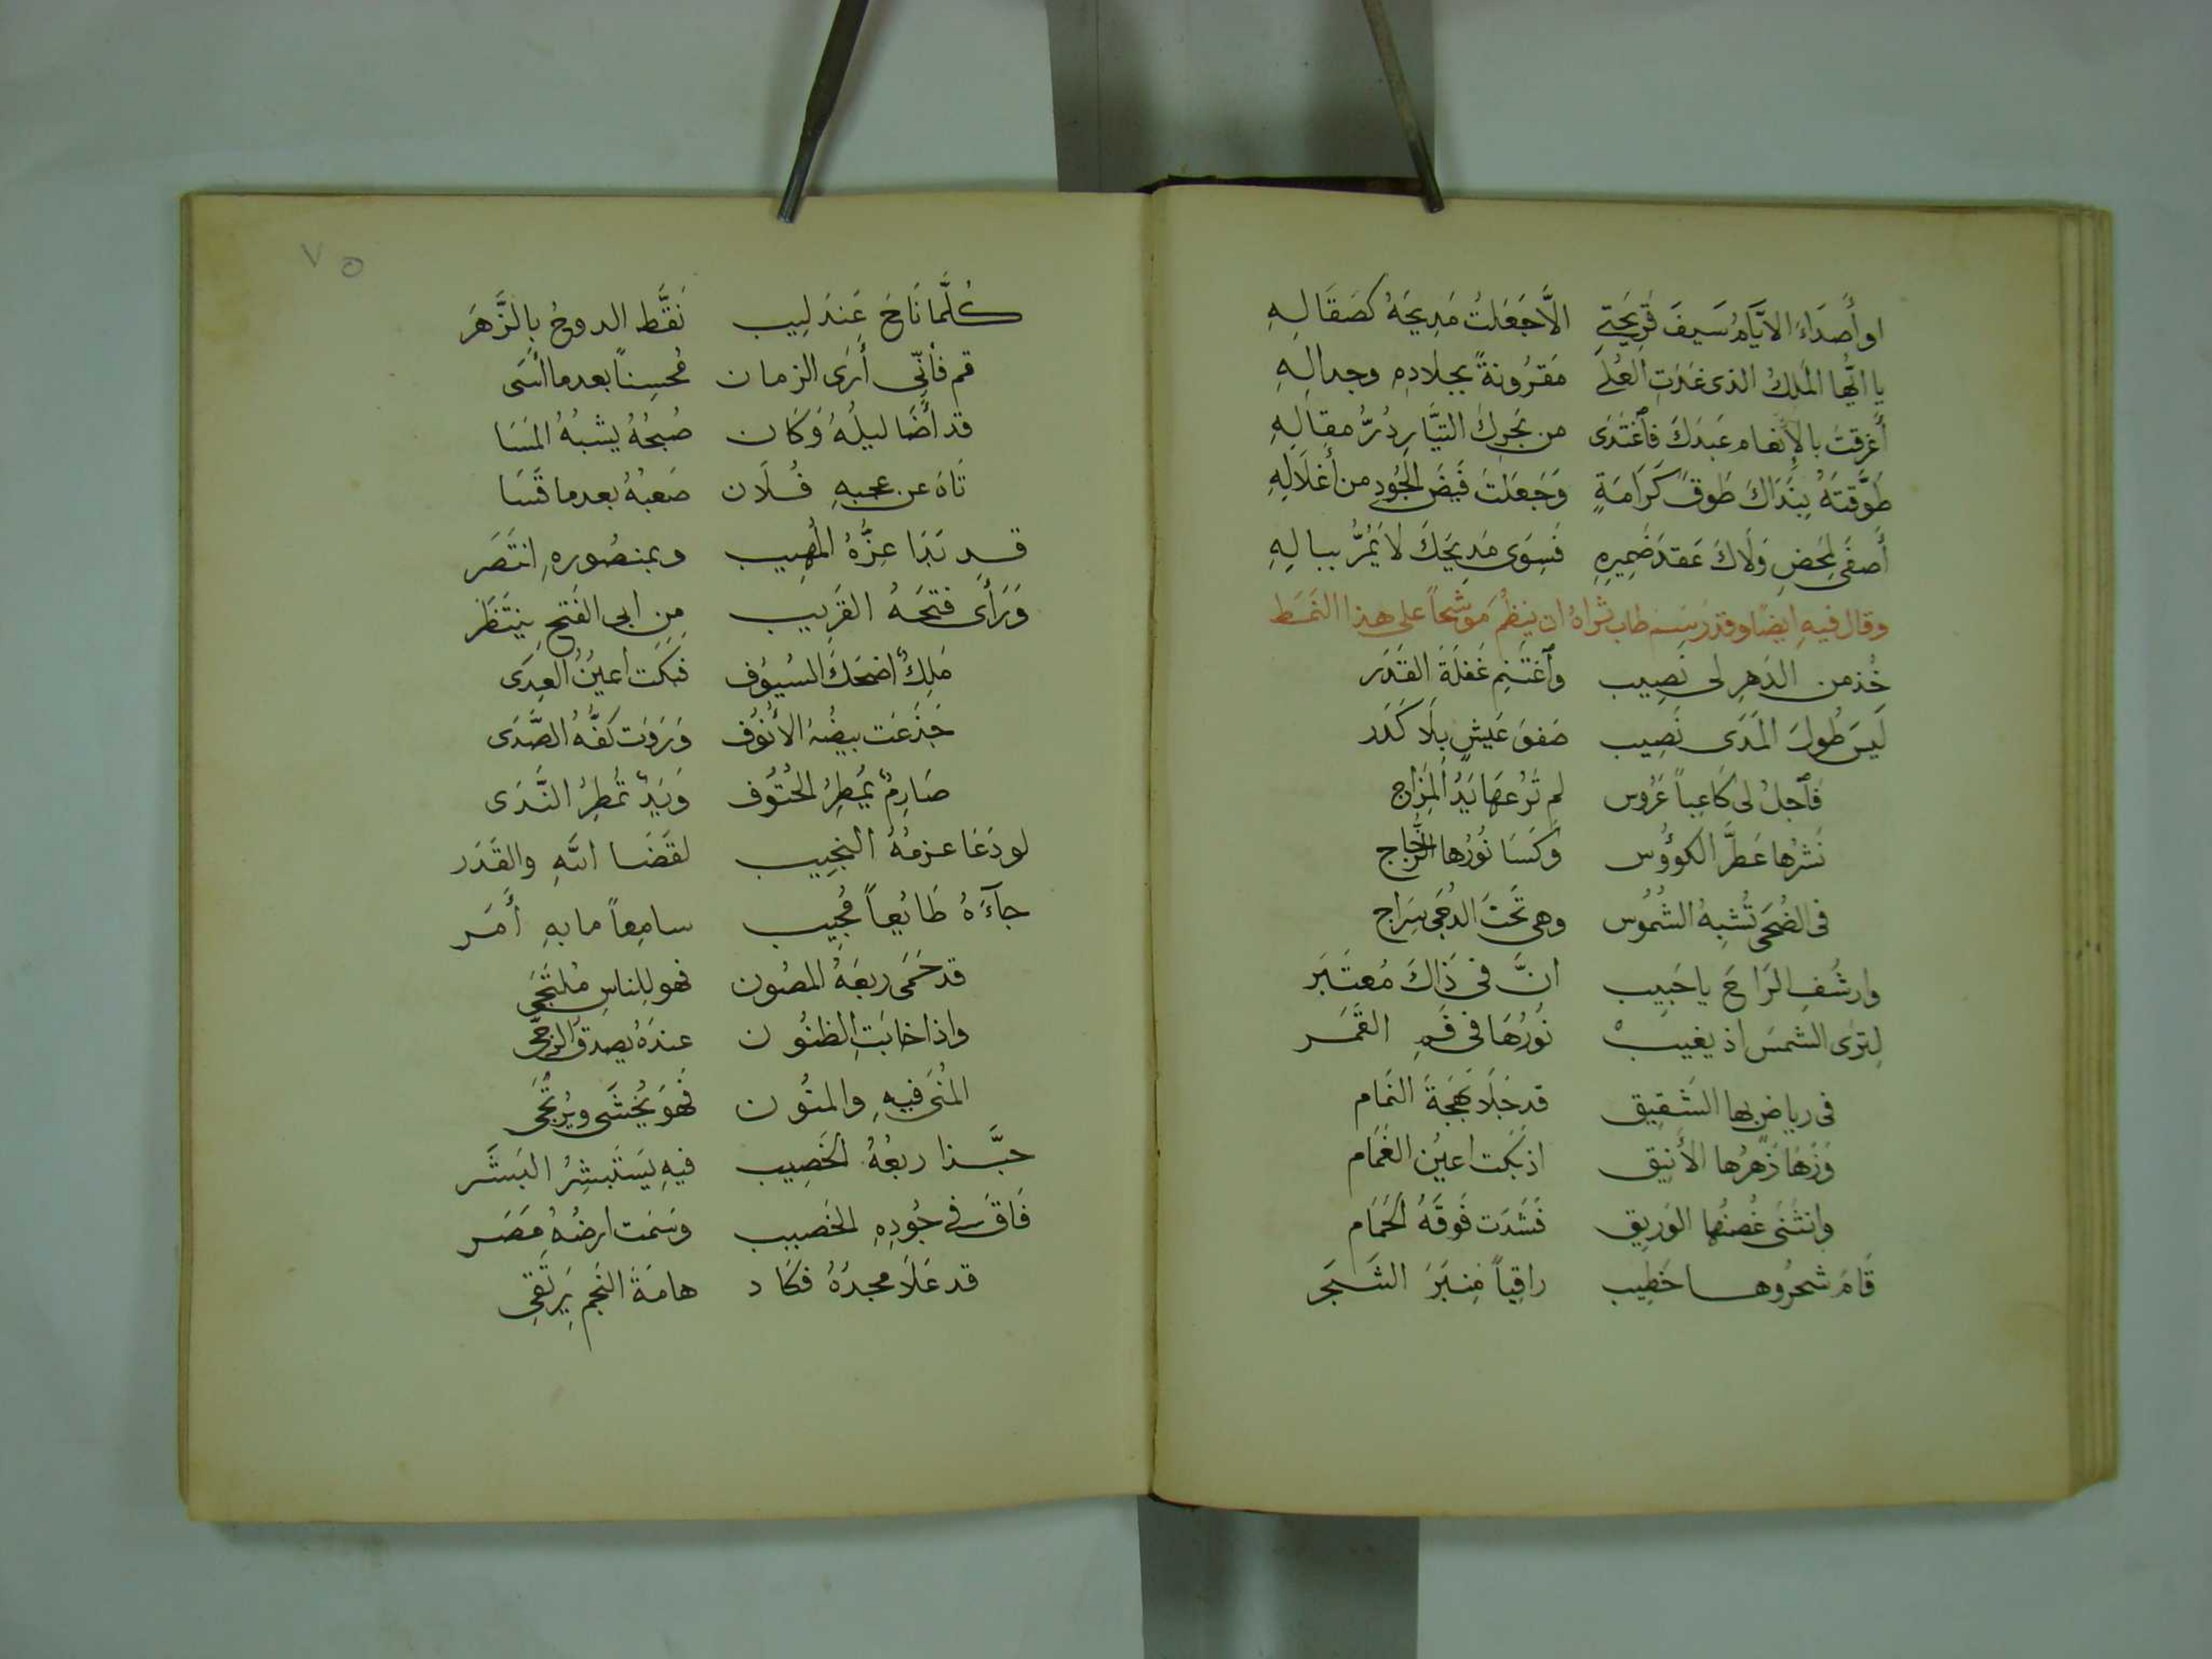 او أَصدَاءَ الايَّامُ سَيفَ قَرِيحَتِى الَّا جَعَلتُ مَدِيحَهُ كصَقَالِهِ
يا ايُّها المَلِكُ الذى غَدَتِ العُلَى مَقرُونةً بجلادِهِ وجدالِهِ
أَغرقتَ بالإِنعام عَبدَكَ فاغتَدَى من بَحرِكَ التيَّارِ دُرُّ مقالِهِ
طَوَّقتَهُ بِنَدَاكَ طَوقَ كَرَامَةٍ وَجَعَلتَ فَيضَ الجُودِ من أَغلَالِهِ
أَصفَى لمَحضِ وَلَاكَ عَقدَ ضَمِيرِهِ فَسِوَى مَدِيحِكَ لَا يَمُرُّ ببالِهِ
وقال فيهِ ايضًا وقد رَسَمَ طاب ثراهُ ان ينظُمَ مَوشَّحاً على هذا النَمَط
خُذ من الدَهرِ لى نَصِيب واَغتَنِم غَفلَةَ القَدَر
لَيسَ طُولَ المَدَى نَصِيب صَفوَ عَيشٍ بِلَا كَدَر
فَاَجلُ لى كَاعِباً عَرُوس لم تَرُعهَا يَدُ المِزَاج
نَشرُها عَطَّرَ الكوُؤُس وَكَسَا نُورُها الزُّجَاج
فى الضُحَى تُشبِهُ الشُمُوس وهى تَحتَ الدُجَى سِرَاج
وارشُفِ الرَاحَ يا حَبِيب انَّ فى ذَاكَ مُعتَبَر
لِترَى الشمسَ اذ يغيبْ نُورُهَا فى فَمِ القَمَر
فى رياضٍ بها الشَقِيق قد جَلَا بَهجَةَ التمَام
وَزَهَا زَهرُها الأَنِيق اذ بَكَت اعيُن الغَمَام
وانثَنَى غُصنُها الوَرِيق فَشَدَت فَوقَهُ الحَمَام
قَامَ شحرُوهـا خَطِيب راقِياً مِنبَرَ الشَجَر
٧٥
كُلَّما نَاحَ عَندَلِيب نَقَّط الدوحُ بِالزَّهَر
قم فأنِّى أَرَى الزمان مُحسِناً بعدما أَسَى
قد أَضَا ليلُهُ وَكَان صُبحُهُ يشبهُ المَسَا
تَاهَ عن عجبهِ فُلَان صَعبُهُ بعدما قَسَا
قد بَدَا عِزُّهُ المُهِيب وبمنصُورِهِ انتَصَر
وَرَأَى فتحَهُ القَرِيب مِن ابى الفَتحِ يَنتَظَر
مَلِكٌ اضحَكَ السيُوف فبَكَت اعيُنُ العِدَى
جَذَعَت بيضُهُ الأُنُوف وَرَوَت كفُّهُ الصَّدَى
صَارِمٌ يُمطِرُ الحُتُوف وَيَدٌ تُمطِرُ النَّدَى
لو دَعَا عزمُهُ النجِيب لقَضَا اللهِ والقَدَر
جآءَهُ طَايُعِاً مُجِيب سامِعاً ما بهِ أَمَر
قد حَمَى ربعَهُ المصُون فهو للناسِ مُلتَجَى
واذا خابَتِ الظنُون عندَهُ يصدقُ الرجَى
المُنَى فيهِ والمنُون فَهوَ يُخشَى ويُرتَجَى
حبَّذا ربعُهُ الخَصِيب فيهِ يَستَبشِرُ البَشَر
فَاقَ فى جُودِهِ الخَصِيب وسَمَت ارضُهُ مِصَر
قد عَلَا مجدُهُ فكَاد هامَةَ النَجمِ يَرتَقِى